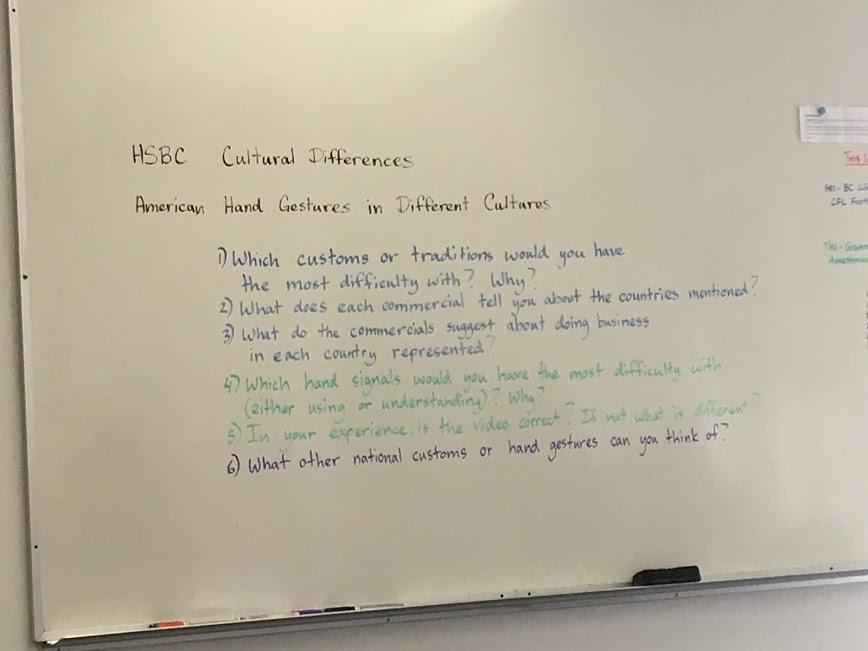 HSBC Cultural Differences
American Hand Gestures in Different Cultures
1) Which customs or traditions would you have
the most difficulty with? Why?
2) What does each commercial tell you about the countries mentioned?
3) What do the commercials suggest about doing business
in each country represented?
4) Which hand signals would you have the most difficulty with
(either using or understanding)? Why?
5) In your experience, is the video correct? If not, what is different?
6) What other national customs or hand gestures can you think of?